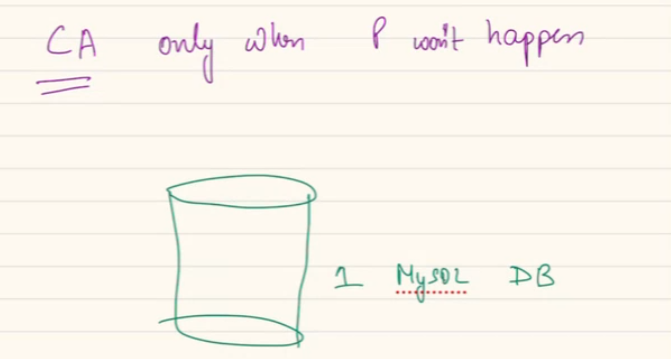 CA only when P won't happen
1 MySQL DB